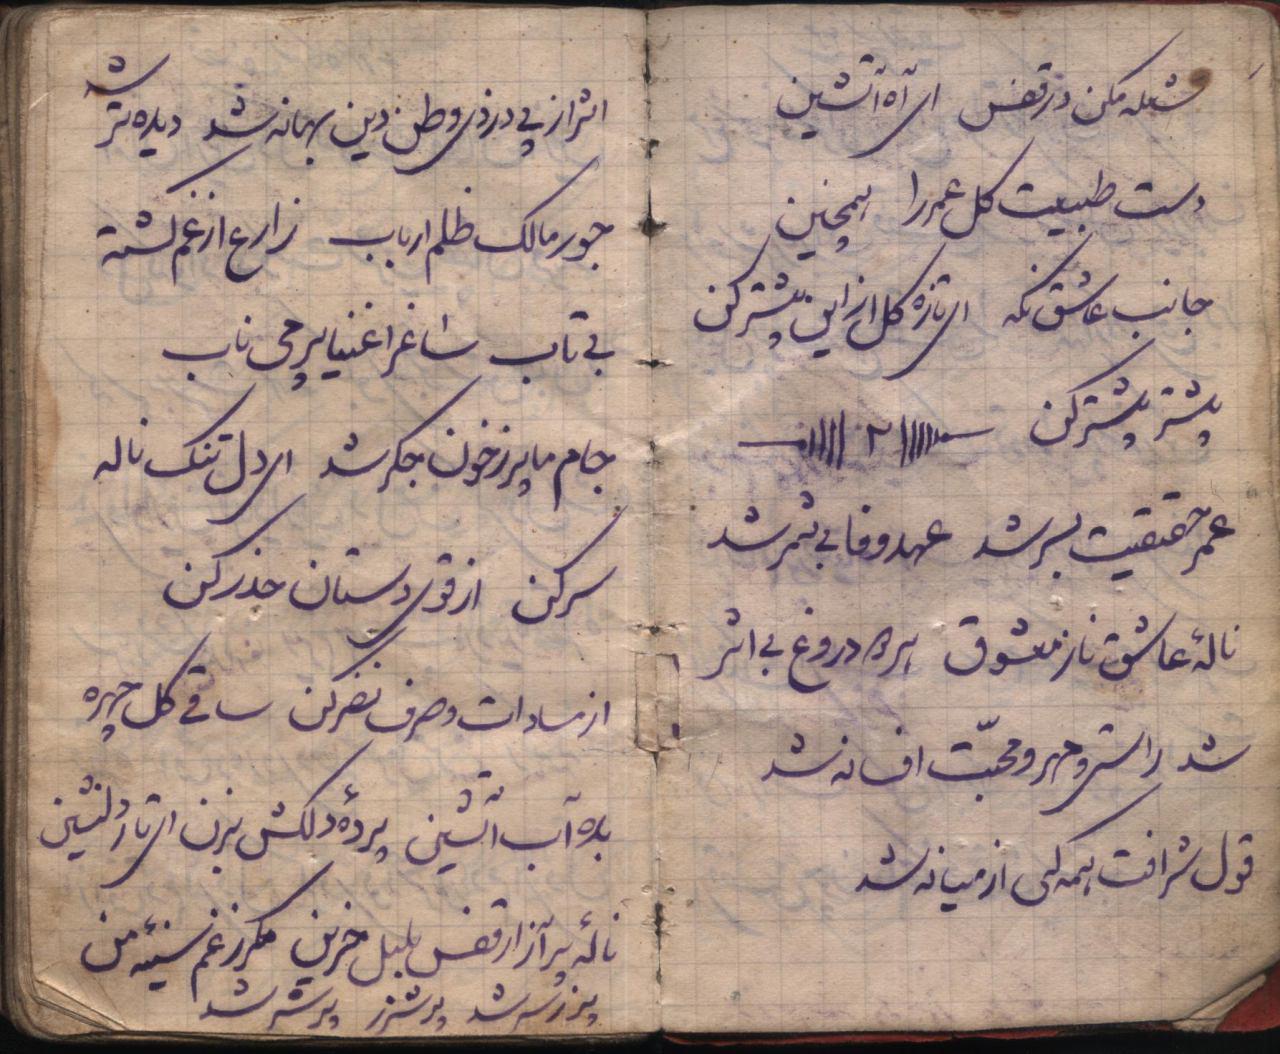 شعله مکن در قفس ای آه آتشین
دست طبیعت گل عمر را همچنین
جانب عاشق نگه ای تازه گل از این پیشتر کن
پیشتر پیشتر کن ۲
عمر حقیقیت بسر شد عهد و وفا بی ثمر شد
نالهٔ عاشق ناز معشوق هر دو دروغ بی اثر
شد راستی و مهر و محبّت افسانه شد
قول شرافت همه گی از میانه شد
اثر از پی دزدی وطن دین بهانه شد دیده تر شد
جور مالک ظلم ارباب زارع از غم گشته
بی تاب ساغر اغنیا پر می ناب
جام ما پر ز خون جگر شد ای دل تنگ ناله
سر کن از قوی دستان حذر کن
از مساوات صرف نظر کن ساقی گل چهره
بده آب آتشین پردهٔ دلکش بزن ای یار دلنشین
نالهٔ پر آر از قفس بلبل حزین کز غم سینهٔ من
پر شرر شد پر شرر پر شرر شد